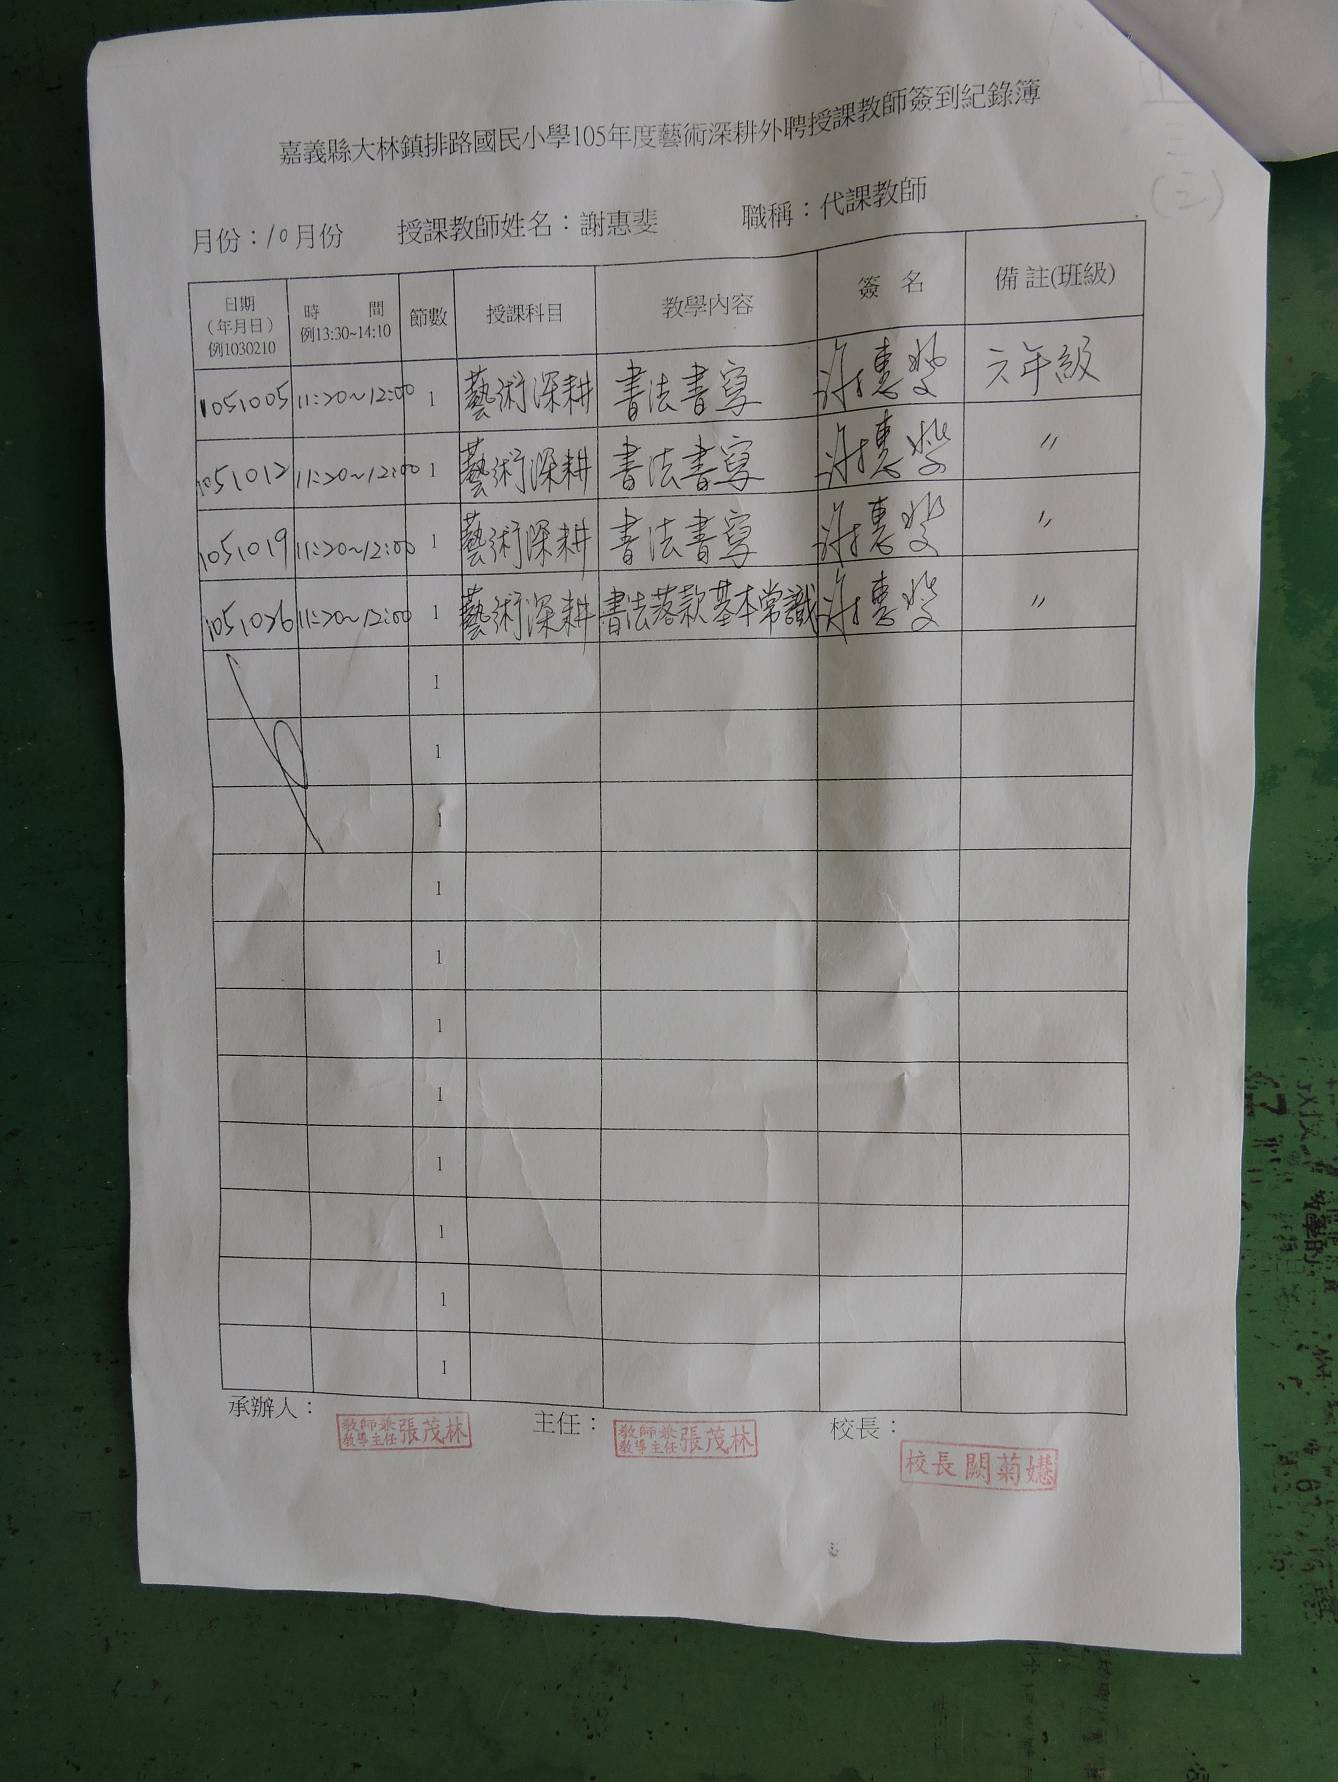 嘉義縣大林鎮排路國民小學105年度藝術深耕外聘授課教師簽到紀錄簿
月份：10月份 授課教師姓名：謝惠斐 職稱：代課教師
日期（年月日）例1030210 時間 例13:30~14:10 節數 授課科目 教學內容 簽名 備註(班級)
1051005 11:20~12:00 1 藝術深耕 書法書寫 謝惠斐 六年級
1051012 11:20~12:00 1 藝術深耕 書法書寫 謝惠斐 〃
1051019 11:20~12:00 1 藝術深耕 書法書寫 謝惠斐 〃
1051026 11:20~12:00 1 藝術深耕 書法落款基本常識 謝惠斐 〃
1
1
1
1
1
1
1
1
1
1
1
承辦人： 教師兼教導主任張茂林 主任： 教師兼教導主任張茂林 校長： 校長闕菊嬺